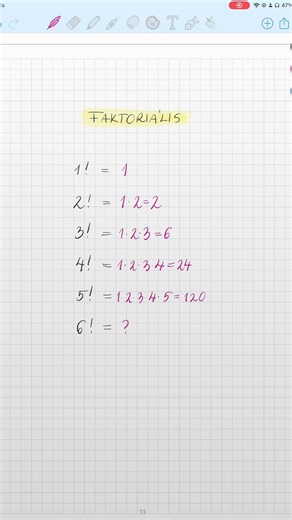 47%
FAKTORIÁLIS
1! = 1
2! = 1·2=2
3! = 1·2·3=6
4! = 1·2·3·4=24
5! = 1·2·3·4·5=120
6! = ?
13